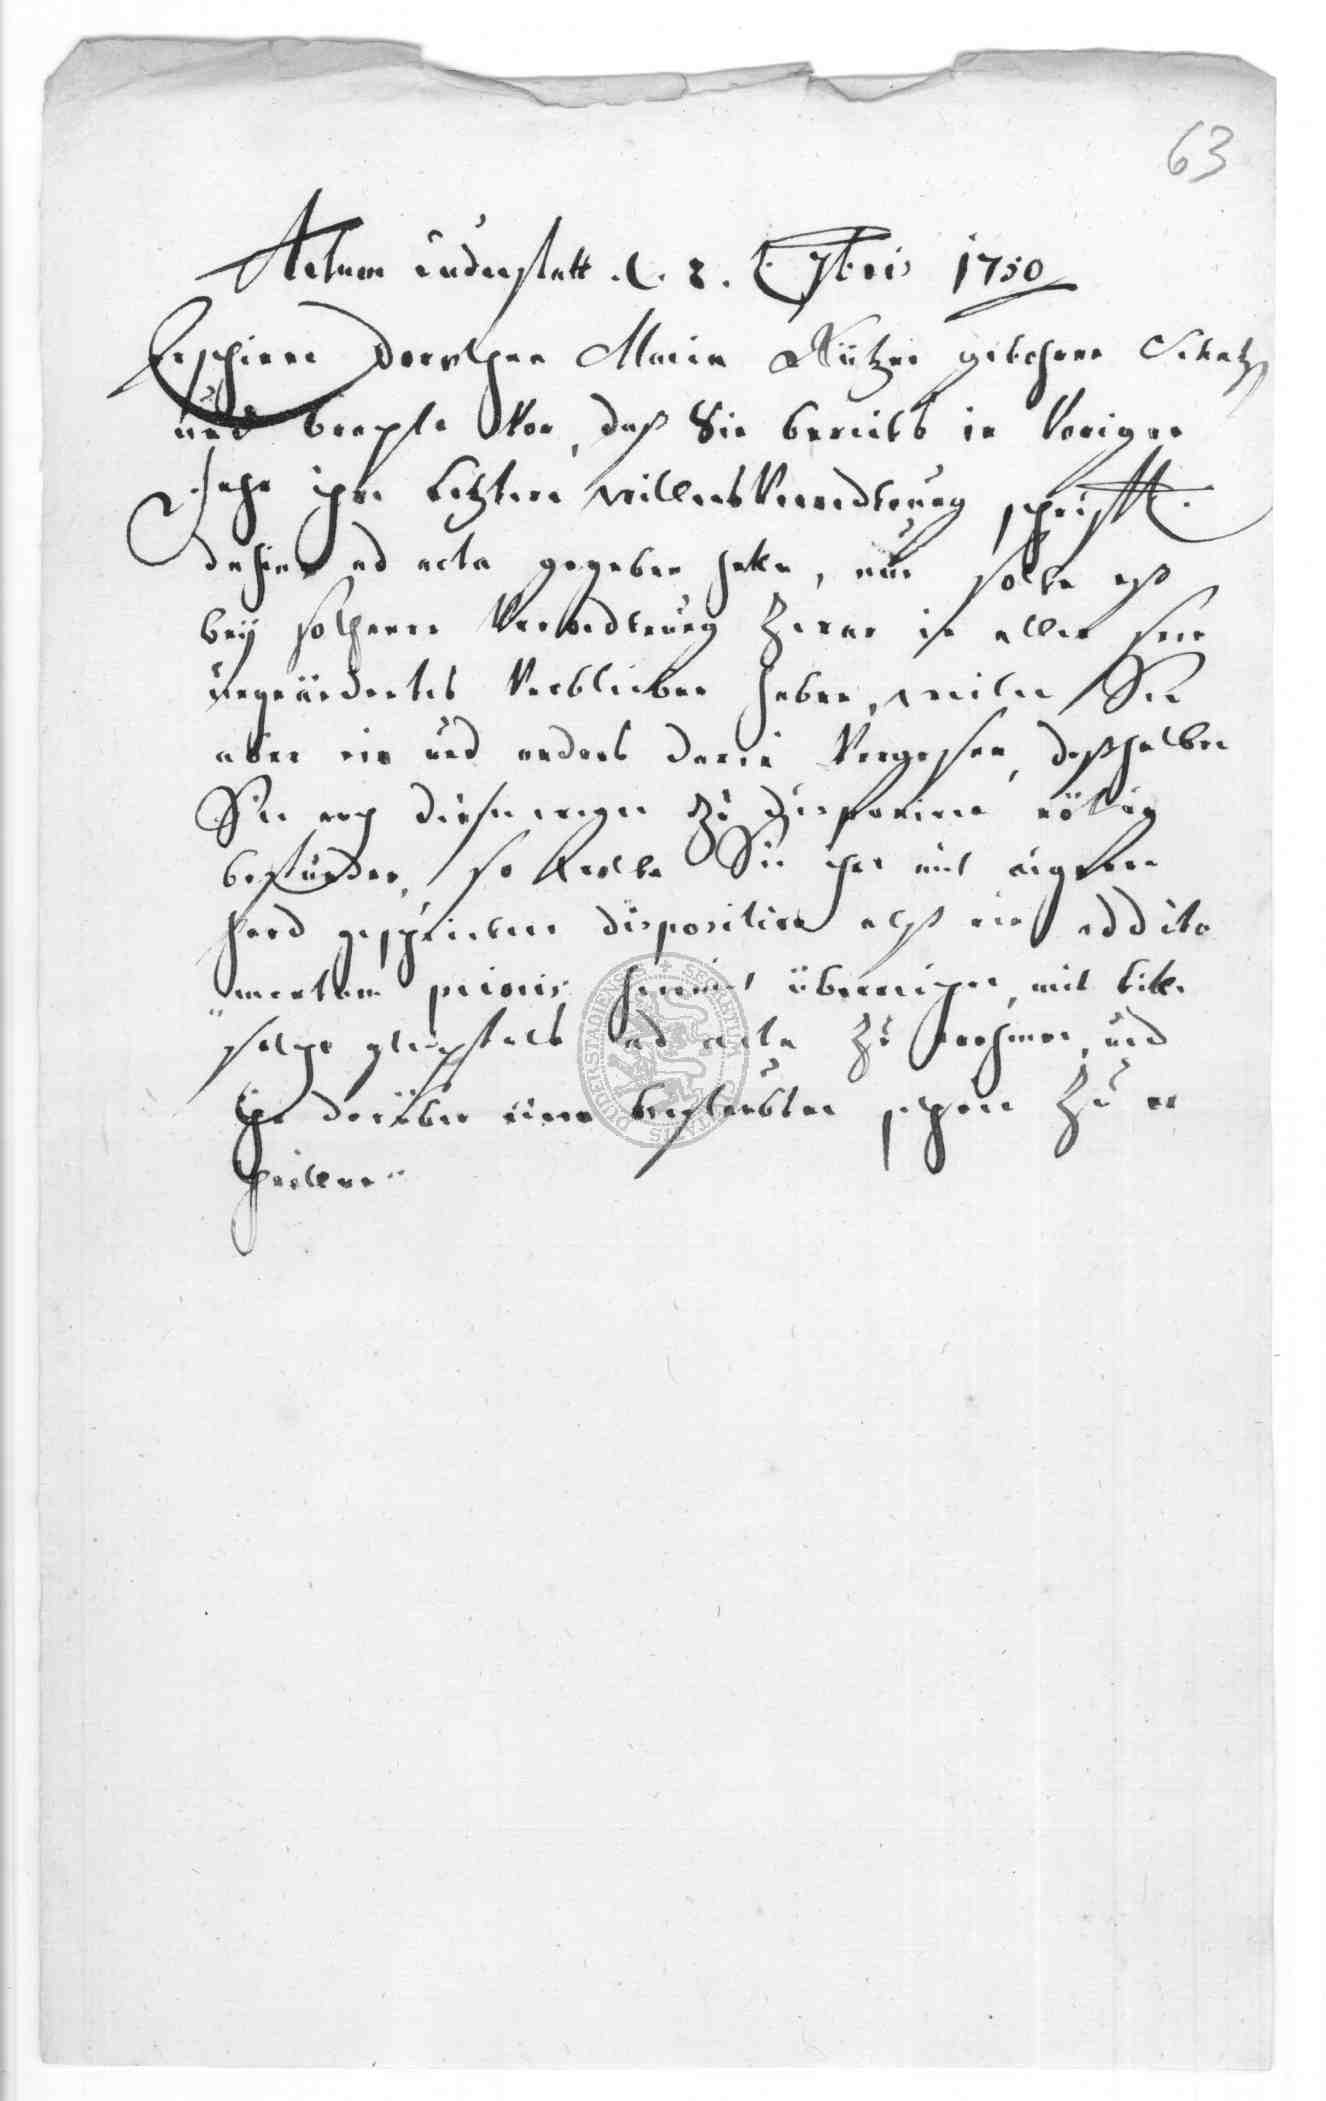 63
Actum Duderstatt d. 8. 7bris 1750
Erschiene Dorothea Maria gebohrne
und brachte Vor, daß Sie bereits in Vorigen
Jahr ihre letztere willens Verordtnung schrifftl.
dahier ad acta gegeben hette, nun solte eß
bey solcher Verordtnung zwar in allen
ungeändertes Verblieben haben, weilen Sie
aber ein und anders darin Vergessen, deßhalben
Sie noch dieser wegen zu disponiren nötig
befunden, so wolte Sie ihre mit eigener
hand geschriebene disposition alß ein addita
mentum prioris hiemit überreichen, mit bitte
solche gleichfals ad acta zu nehmen, und
Ihr darüber einen beglaubten schein zu er
theilen
SECRETUM CIVITATIS DUDERSTADIENSIS